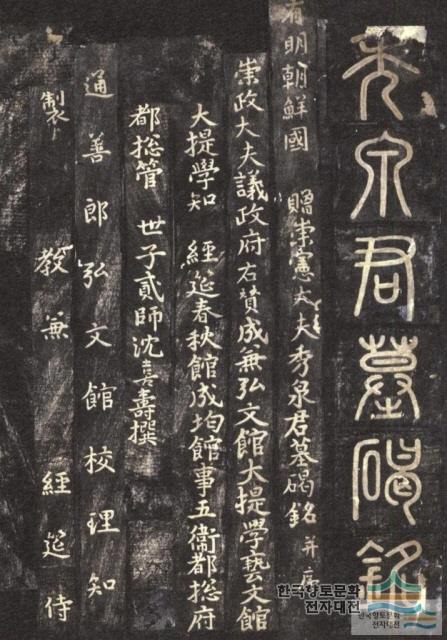 秀泉君墓碣銘
有明朝鮮國 贈崇憲大夫秀泉君墓碣銘 并序
崇政大夫議政府右贊成兼弘文館大提學藝文館
大提學知 經筵春秋館成均館事五衛都摠府
都摠管 世子貳師沈喜壽撰
通善郎弘文館校理知
製 教兼 經筵侍
한국향토문화
전자대전
한국향토문화
전자대전